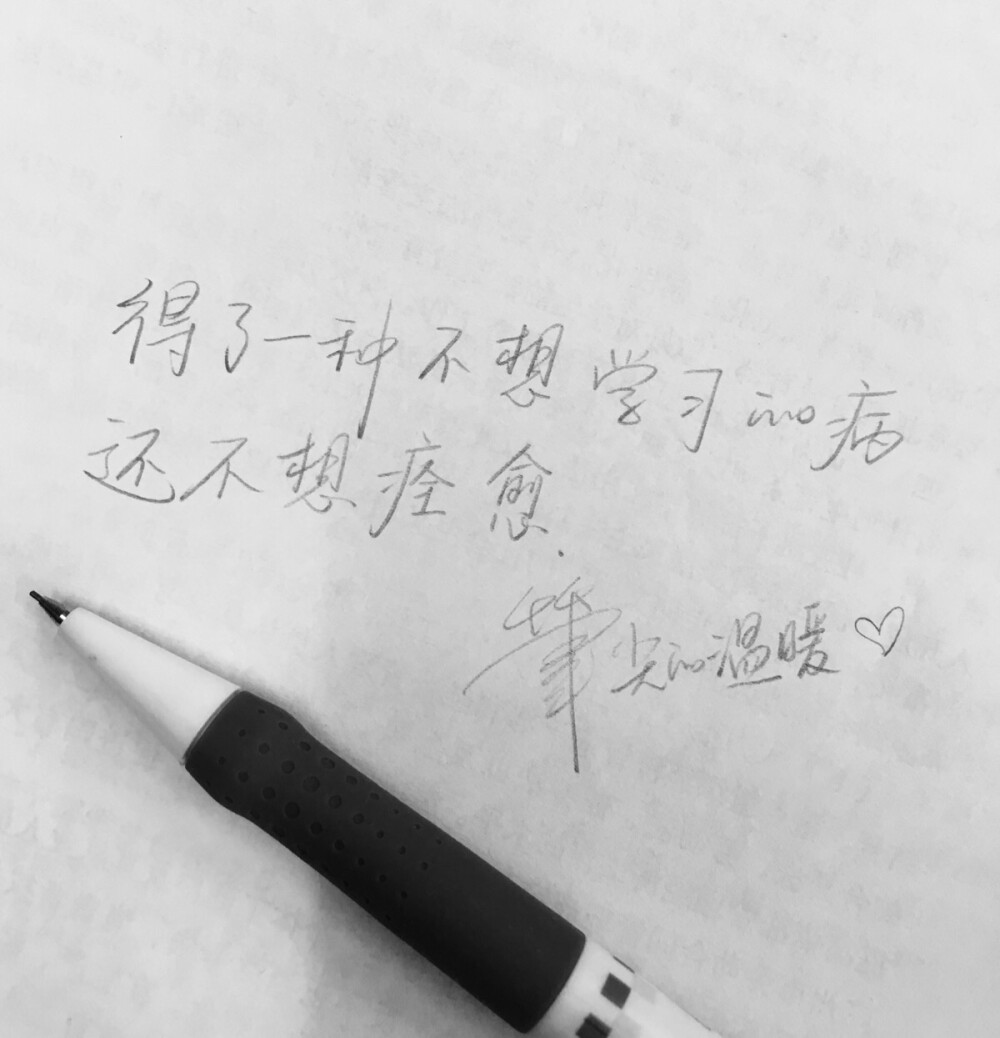 得了一种不想学习的病
还不想痊愈.
笔尖的温暖♡